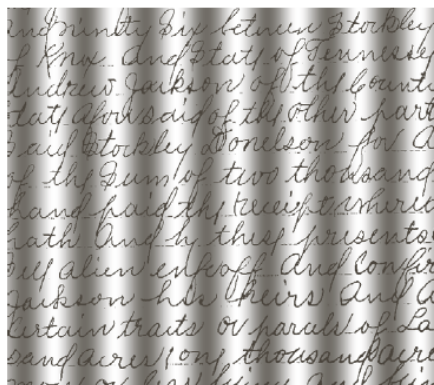 and ninety Six between Stockley
of Knox and State of Tennessee
Andrew Jackson of the Count
State aforesaid of the other part
Said Stockley Donelson for
of the Sum of two thousand
hand paid the receipt
hath And by these presents
Sell alien enfeoff And Confir
Jackson his heirs And
Certain traits or parcels of La
sand acres
thousand acre
more or less